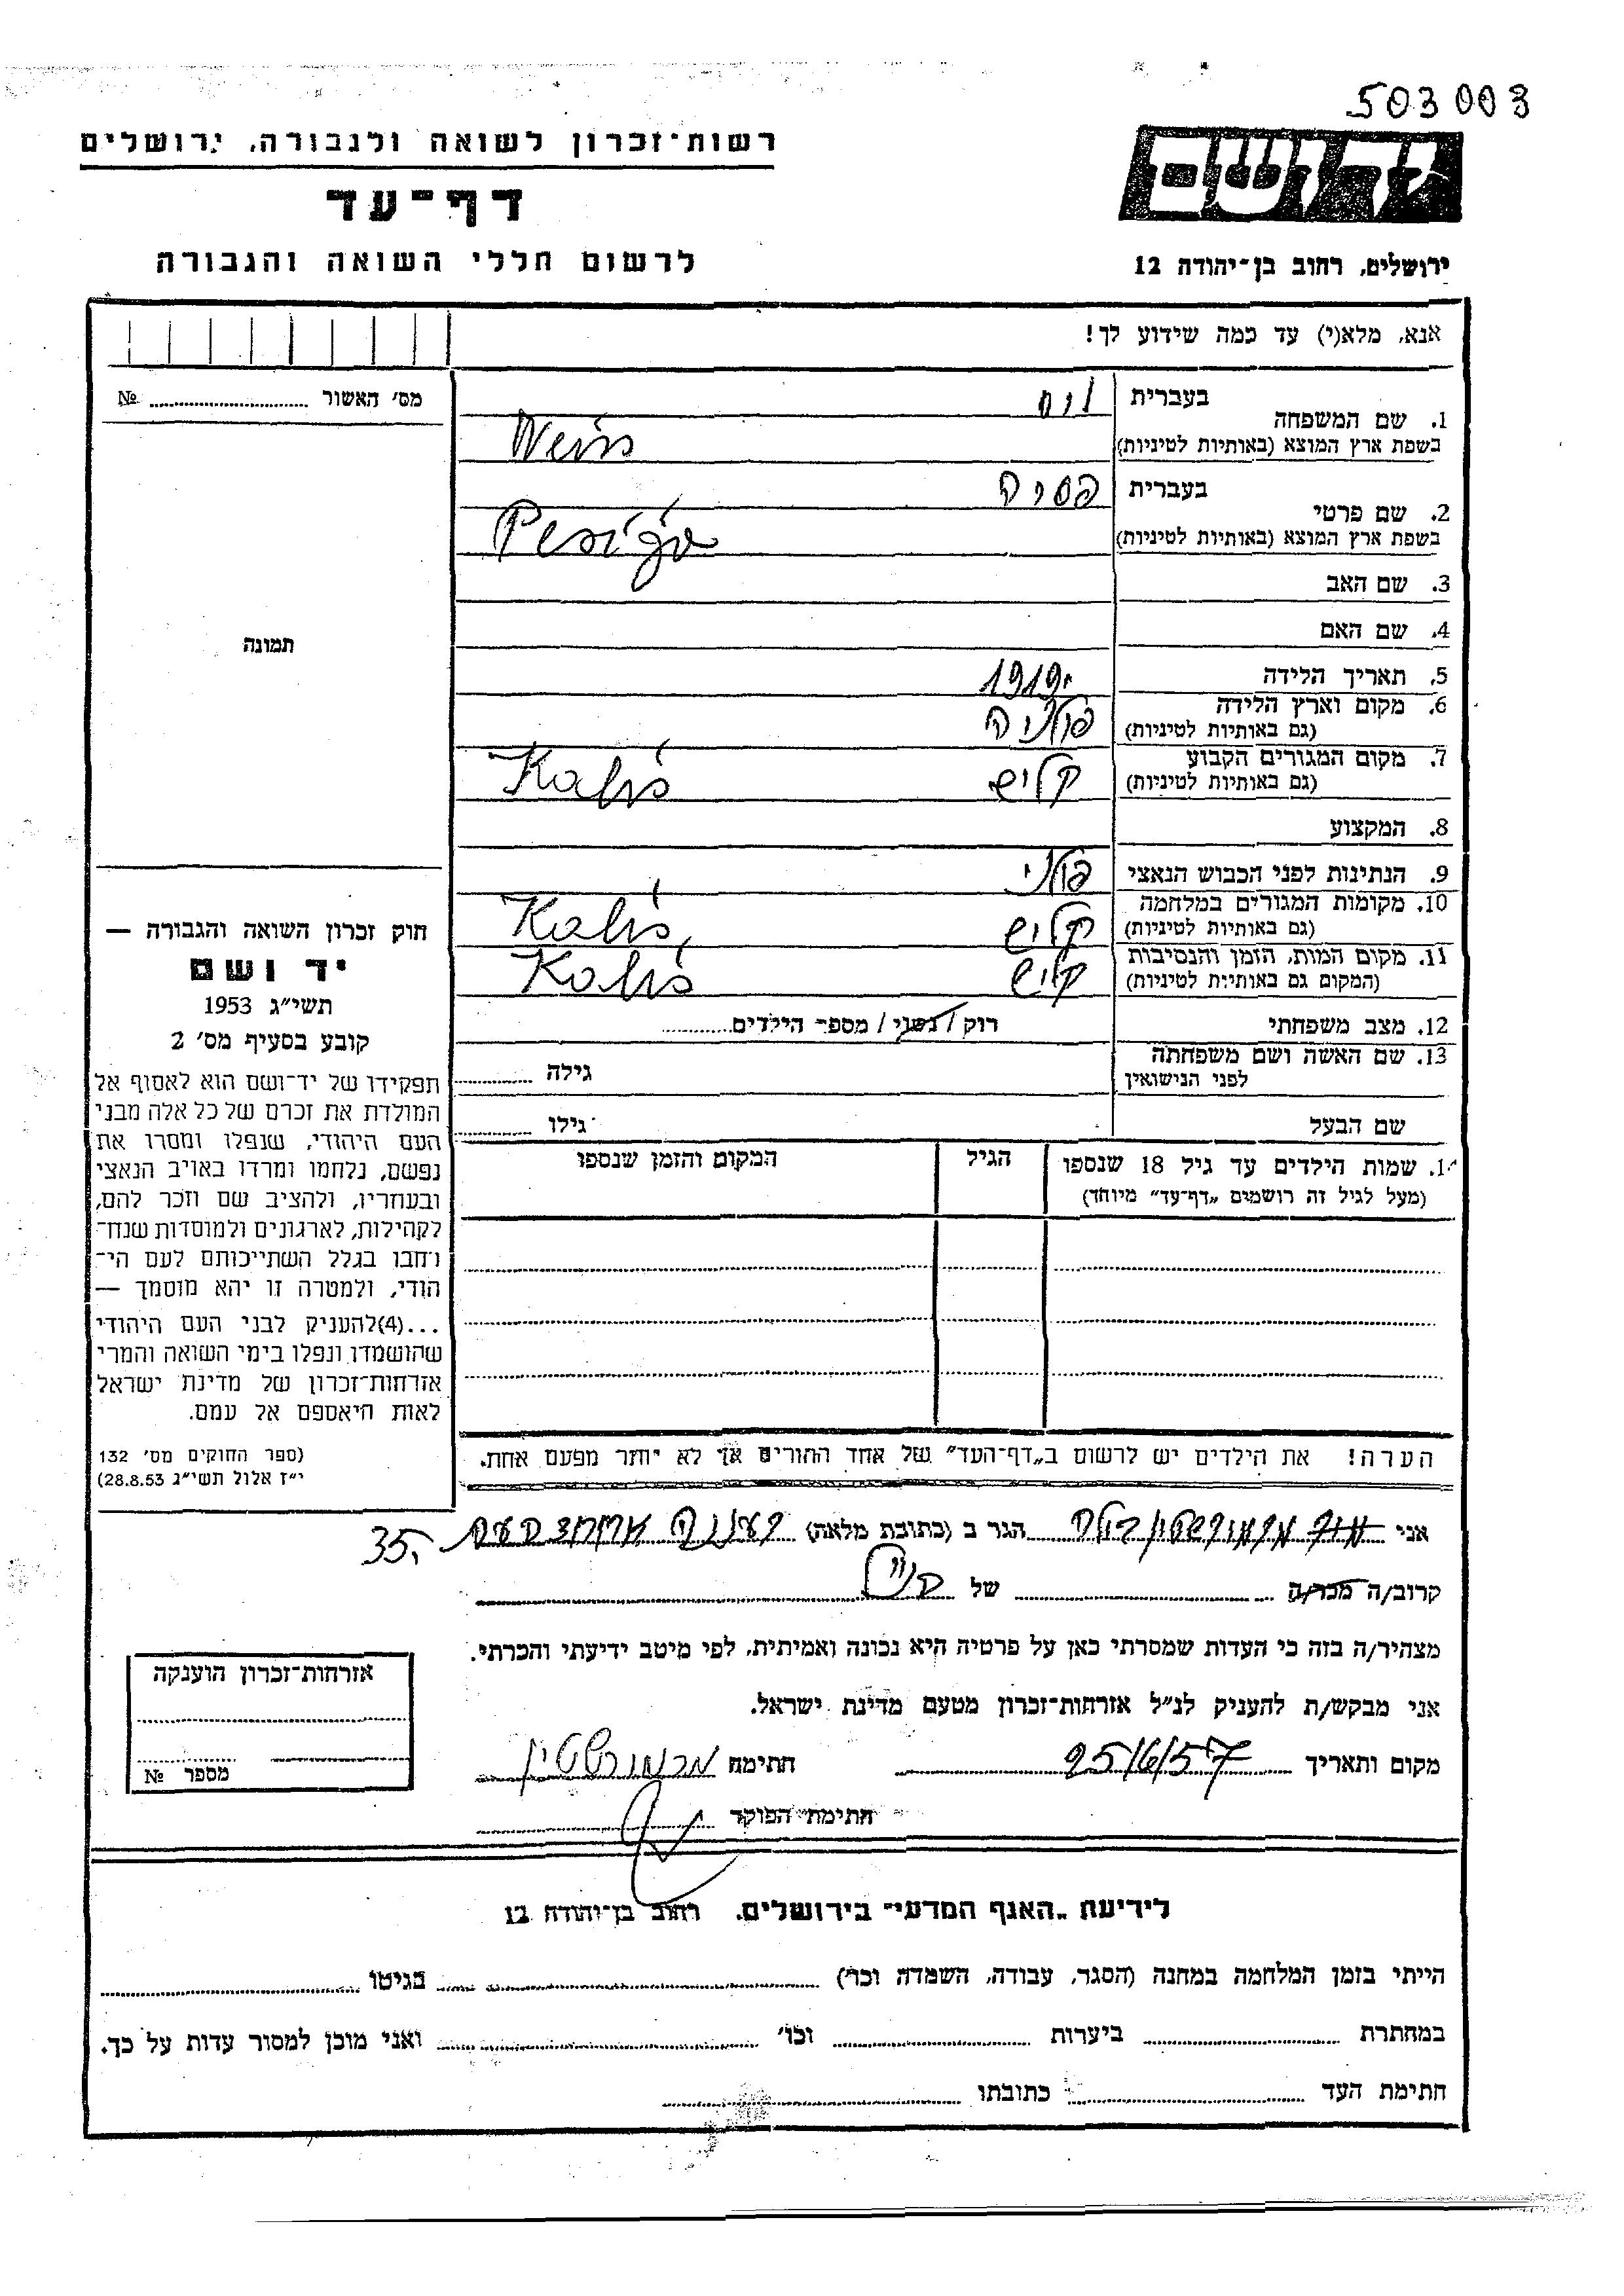 503003
רשות־זכרון לשואה ולגבורה, ירושלים
דף־עד
לרשום חללי השואה והגבורה
יד ושם
ירושלים, רחוב בן־יהודה 12
אנא, מלא(י) עד כמה שידוע לך!
מס׳ האשור № 
1. שם המשפחה
בעברית
בשפת ארץ המוצא (באותיות לטיניות)
Weiss
2. שם פרטי
בעברית פסיה
בשפת ארץ המוצא (באותיות לטיניות)
3. שם האב
4. שם האם
5. תאריך הלידה 1919
6. מקום וארץ הלידה פולניה
(גם באותיות לטיניות)
7. מקום המגורים הקבוע קליש Kaliś
(גם באותיות לטיניות)
8. המקצוע
9. הנתינות לפני הכבוש הנאצי פולני
10. מקומות המגורים במלחמה קליש Kaliś
(גם באותיות לטיניות)
11. מקום המות, הזמן והנסיבות קליש Kaliś
(המקום גם באותיות לטיניות)
12. מצב משפחתי רוק / נשוי / מספר הילדים
13. שם האשה ושם משפחתה
לפני הנישואין
גילה
שם הבעל גילו
1. שמות הילדים עד גיל 18 שנספו
(מעל לגיל זה רושמים „דף־עד” מיוחד)
הגיל
המקום והזמן שנספו
הערה! את הילדים יש לרשום ב„דף־העד” של אחד ההורים אך לא יותר מפעם אחת.
תמונה
חוק זכרון השואה והגבורה —
יד ושם
תשי״ג 1953
קובע בסעיף מס׳ 2
תפקידו של יד־ושם הוא לאסוף אל
המולדת את זכרם של כל אלה מבני
העם היהודי, שנפלו ומסרו את
נפשם, נלחמו ומרדו באויב הנאצי
ובעוזריו, ולהציב שם וזכר להם,
לקהילות, לארגונים ולמוסדות שנח־
רחבו בגלל השתייכותם לעם הי־
הודי, ולמטרה זו יהא מוסמך —
...(4)להעניק לבני העם היהודי
שהושמדו ונפלו בימי השואה והמרי
אזרחות־זכרון של מדינת ישראל
לאות היאספם אל עמם.
(ספר החוקים מס׳ 132
י״ז אלול תשי״ג 28.8.53)
אני הגר ב (כתובת מלאה)
35.
קרוב/ה מכר/ה של
מצהיר/ה בזה כי העדות שמסרתי כאן על פרטיה היא נכונה ואמיתית, לפי מיטב ידיעתי והכרתי.
אני מבקש/ת להעניק לנ״ל אזרחות־זכרון מטעם מדינת ישראל.
מקום ותאריך 25/6/57 חתימה מרמורשטיין
חתימת הפוקד
אזרחות־זכרון הוענקה
מספר №
לידיעת „האגף המדעי” בירושלים, רחוב בן־יהודה 12
הייתי בזמן המלחמה במחנה (הסגר, עבודה, השמדה וכו׳) בגיטו
במחתרת ביערות וכו׳ ואני מוכן למסור עדות על כך.
חתימת העד כתובתו